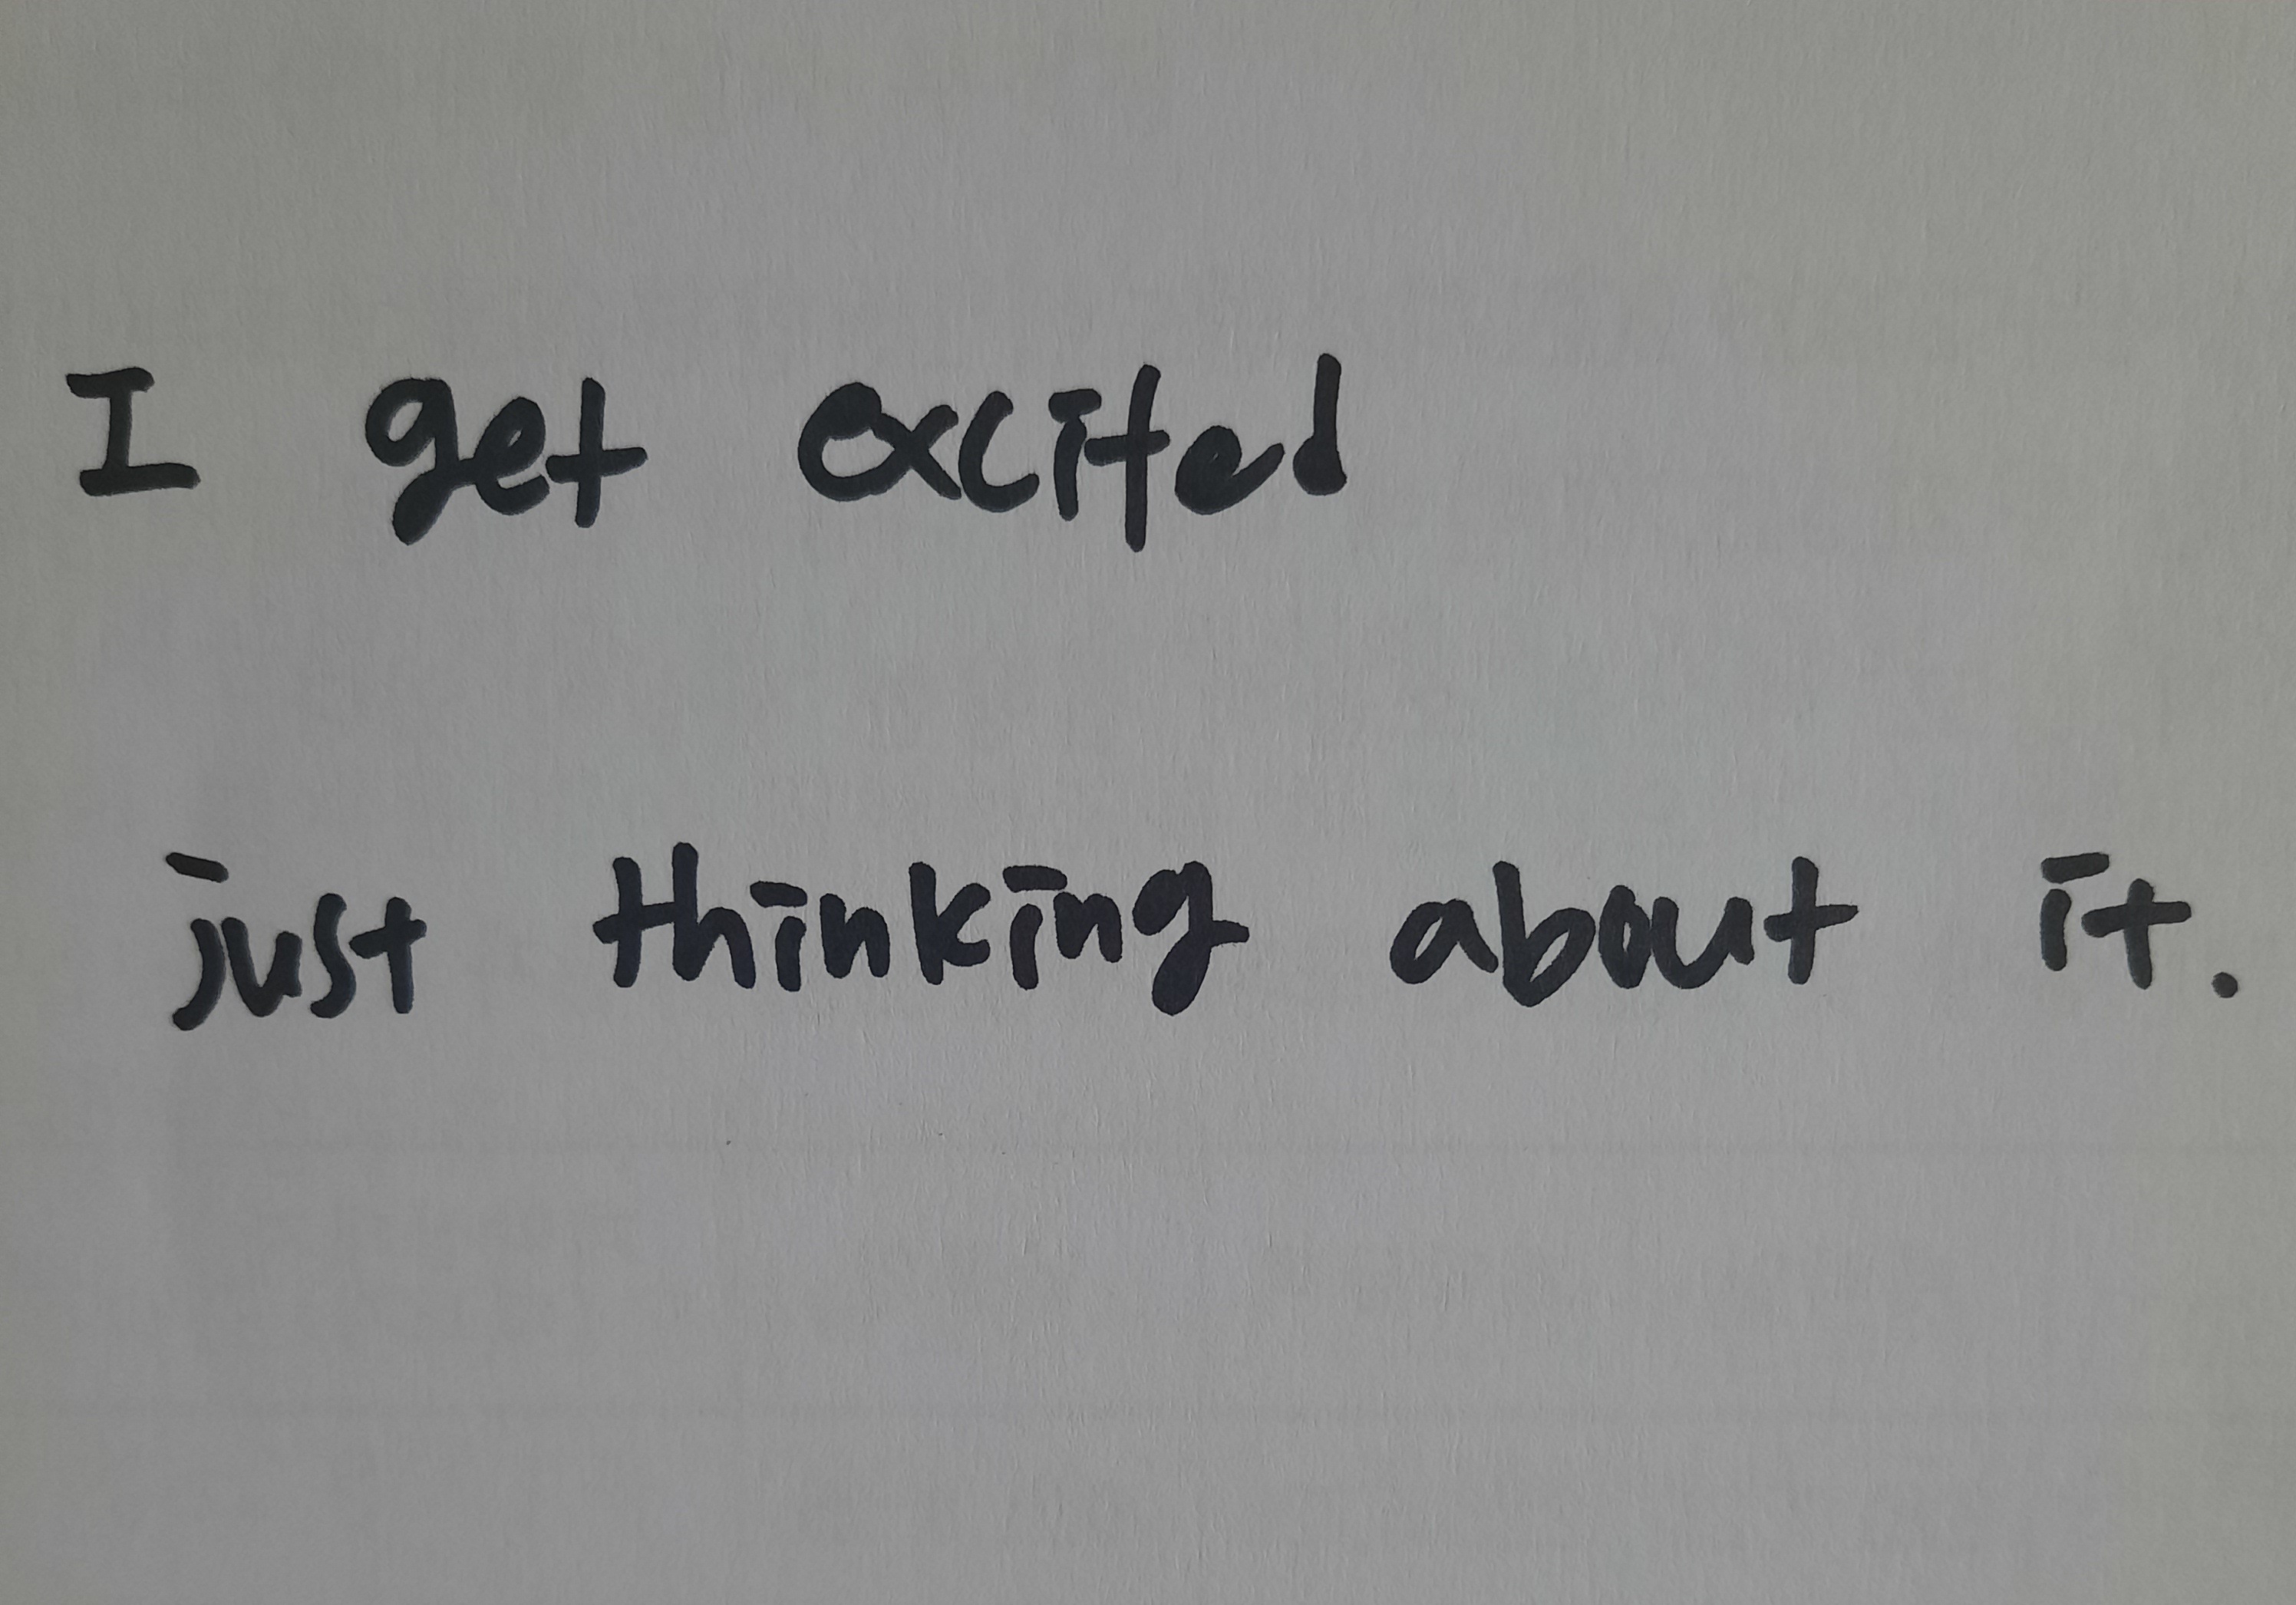 I get excited
just thinking about it.